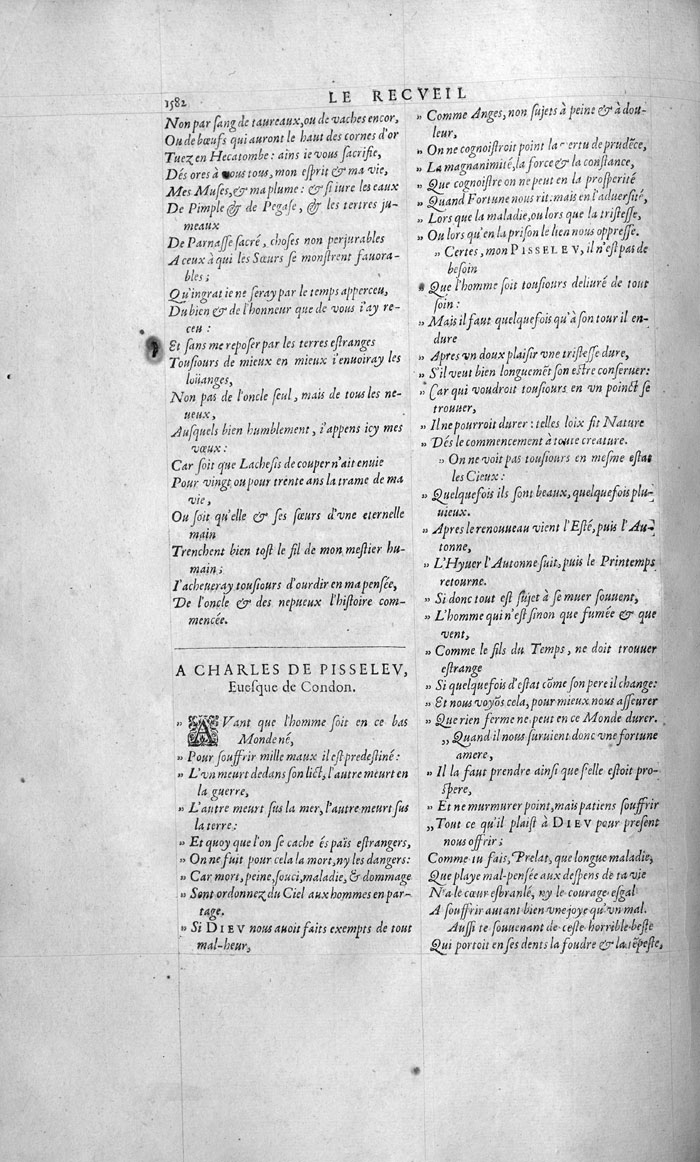 1582
LE RECVEIL
Non par sang de taureaux, ou de vaches encor,
Ou de bœufs qui auront le haut des cornes d'or
Tuez en Hecatombe: ains ie vous sacrifie,
Dés ores à vous tous, mon esprit & ma vie,
Mes Muses, & ma plume: & si iure les eaux
De Pimple & de Pegase, & les tertres ju-
meaux
De Parnasse sacré, choses non perjurables
A ceux à qui les Sœurs se monstrent fauora-
bles;
Qu'ingrat ie ne seray par le temps apperceu,
Du bien & de l'honneur que de vous i'ay re-
ceu:
Et sans me reposer par les terres estranges
Tousiours de mieux en mieux i'enuoiray les
loüanges,
Non pas de l'oncle seul, mais de tous les ne-
ueux,
Ausquels bien humblement, i'appens icy mes
vœux:
Car soit que Lachesis de couper n'ait enuie
Pour vingt, ou pour trente ans la trame de ma
vie,
Ou soit qu'elle & ses sœurs d'vne eternelle
main
Trenchent bien tost le fil de mon mestier hu-
main;
I'acheueray tousiours d'ourdir en ma pensée,
De l'oncle & des nepueux l'histoire com-
mencée.
A CHARLES DE PISSELEV,
Euesque de Condon.
» AVant que l'homme soit en ce bas
Monde né,
» Pour souffrir mille maux il est predestiné:
» L'vn meurt dedans son lict, l'autre meurt en
la guerre,
» L'autre meurt sus la mer, l'autre meurt sus
la terre:
» Et quoy que l'on se cache és païs estrangers,
» On ne fuit pour cela la mort, ny les dangers:
» Car mort, peine, souci, maladie, & dommage
» Sont ordonnez du Ciel aux hommes en par-
tage.
» Si DIEV nous auoit faits exempts de tout
mal-heur,
» Comme Anges, non sujets à peine & à dou-
leur,
» On ne cognoistroit point la vertu de prudēce,
» La magnanimité, la force & la constance,
» Que cognoistre on ne peut en la prosperité
» Quand Fortune nous rit: mais en l'aduersité,
» Lors que la maladie, ou lors que la tristesse,
» Ou lors qu'en la prison le lien nous oppresse.
» Certes, mon PISSELEV, il n'est pas de
besoin
» Que l'homme soit tousiours deliuré de tout
soin:
» Mais il faut quelquefois qu'à son tour il en-
dure
» Apres vn doux plaisir vne tristesse dure,
» S'il veut bien longuemēt son estre conseruer:
» Car qui voudroit tousiours en vn poinct se
trouuer,
» Il ne pourroit durer: telles loix fit Nature
» Dés le commencement à toute creature.
» On ne voit pas tousiours en mesme estat
les Cieux:
» Quelquefois ils sont beaux, quelquefois plu-
uieux.
» Apres le renouueau vient l'Esté, puis l'Au-
tonne,
» L'Hyuer l'Autonne suit, puis le Printemps
retourne.
» Si donc tout est sujet à se muer souuent,
» L'homme qui n'est sinon que fumée & que
vent,
» Comme le fils du Temps, ne doit trouuer
estrange
» Si quelquefois d'estat cōme son pere il change:
» Et nous voyōs cela, pour mieux nous asseurer
» Que rien ferme ne peut en ce Monde durer.
„ Quand il nous suruient donc vne fortune
amere,
» Il la faut prendre ainsi que s'elle estoit pro-
spere,
» Et ne murmurer point, mais patiens souffrir
„ Tout ce qu'il plaist à DIEV pour present
nous offrir;
Comme tu fais, Prelat, que longue maladie,
Que playe mal-pensée aux despens de ta vie
N'a le cœur esbranlé, ny le courage esgal
A souffrir autant bien vne joye qu'vn mal.
Aussi te souuenant de ceste horrible beste
Qui portoit en ses dents la foudre & la tēpeste,